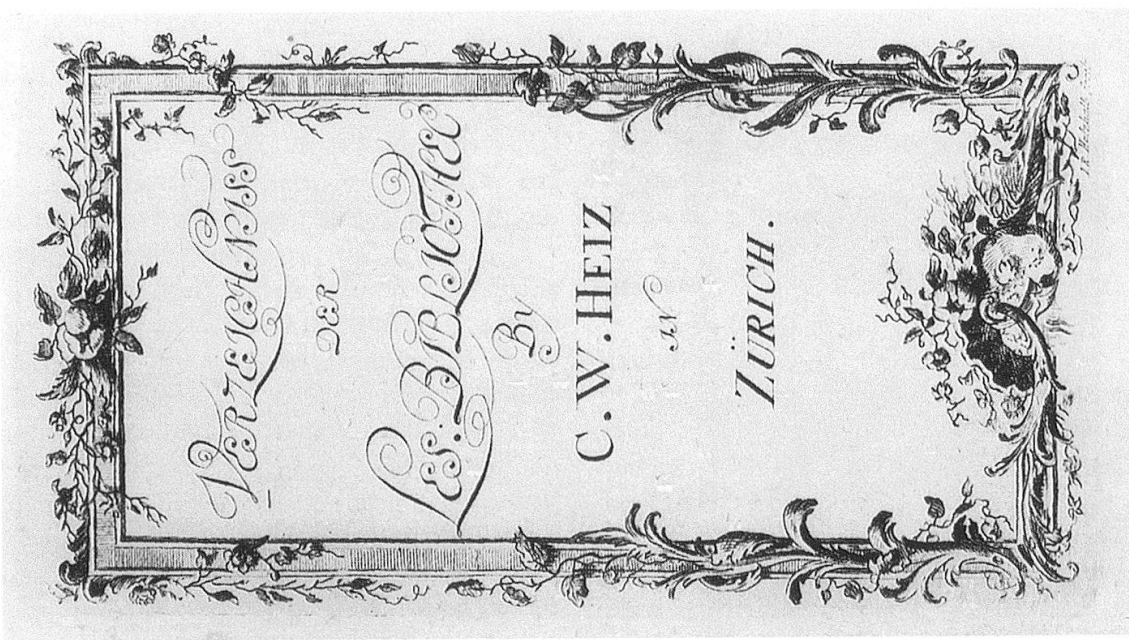 VERZEICHNISS
DER
LES: BIBLIOTHEC
By
C. W. HEIZ
IN
ZÜRICH.